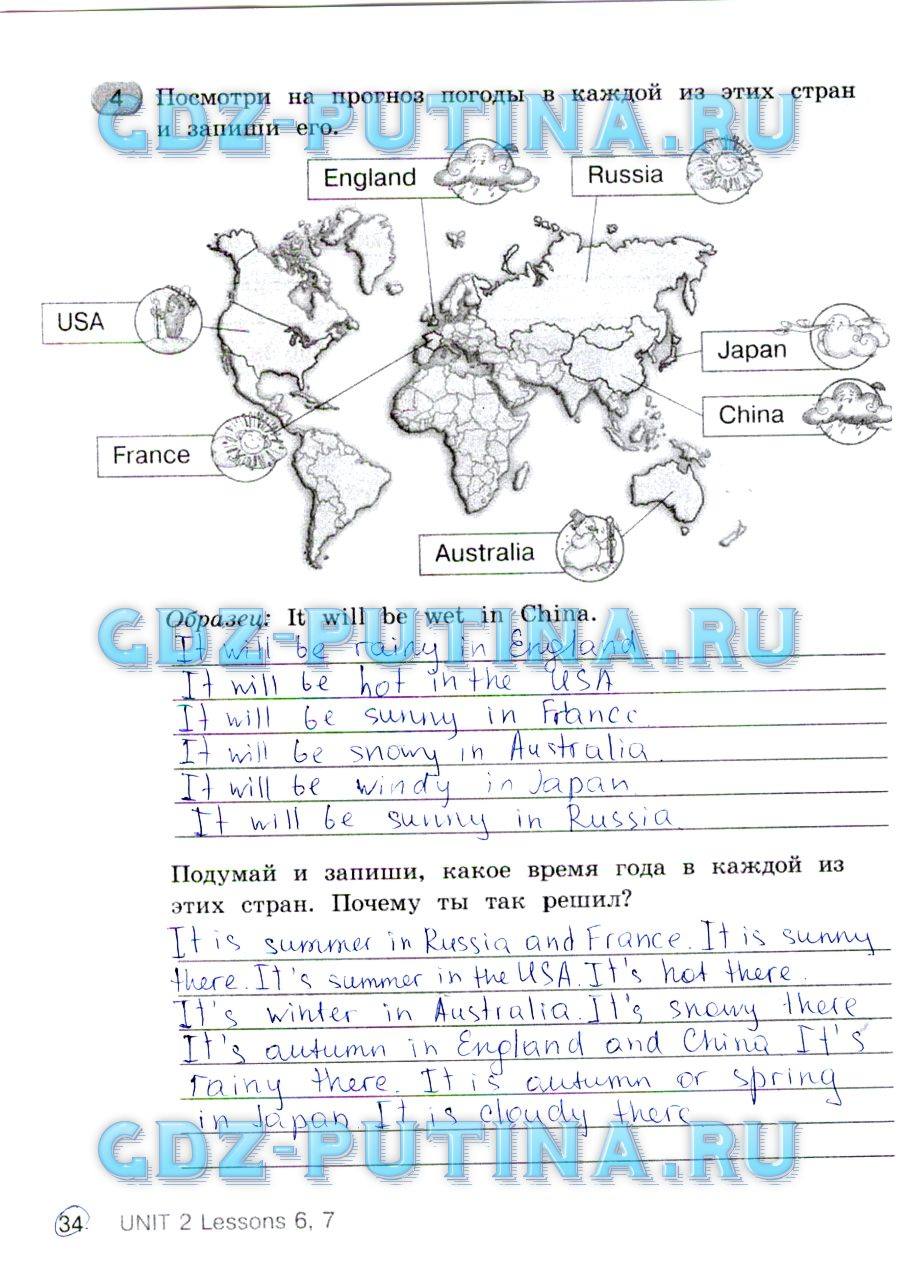 4 Посмотри на прогноз погоды в каждой из этих стран
GDZ-PUTINA.RU
и запиши его.
England
Russia
USA
Japan
China
France
Australia
Образец: It will be wet in China.
GDZ-PUTINA.RU
It will be rainy in England
It will be hot in the USA
It will be sunny in France
It will be snowy in Australia.
It will be windy in Japan
It will be sunny in Russia
Подумай и запиши, какое время года в каждой из
этих стран. Почему ты так решил?
It is summer in Russia and France. It is sunny
there. It's summer in the USA. It's hot there.
It's winter in Australia. It's snowy there
It's autumn in England and China It's
rainy there. It is autumn or spring
in Japan. It is cloudy there
GDZ-PUTINA.RU
34 UNIT 2 Lessons 6, 7